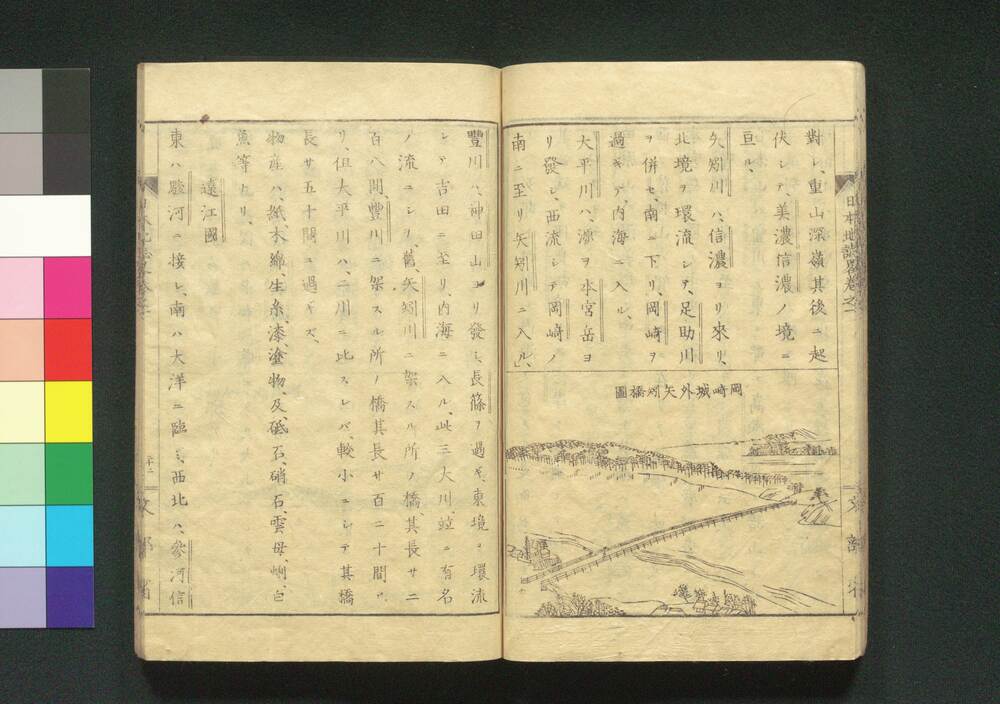 對シ、重山深嶺其後ニ起
伏シテ、美濃信濃ノ境ニ
亘ル、
矢矧川ハ、信濃ヨリ來リ、
北境ヲ環流シテ、足助川
ヲ併セ、南ニ下リ、岡﨑ヲ
過ギテ、內海ニ入ル、
大平川ハ、源ヲ本宮岳ヨ
リ發シ、西流シテ岡﨑ノ
南ニ至リ矢矧川ニ入ル、
岡﨑城外矢矧橋圖
日本地誌略卷之一
文部省
豐川ハ、神田山ヨリ發シ、長篠ヲ過ギ、東境ヲ環流
シテ吉田ニ至リ、內海ニ入ル、此三大川、竝ニ有名
ノ流ニシテ、舊、矢矧川ニ架スル所ノ橋、其長サ二
百八間、豐川ニ架スル所ノ橋其長サ百二十間ア
リ、但大平川ハ、二川ニ比スレバ、較小ニシテ其橋
長サ五十間ニ過ギズ、
物產ハ、紙、木綿、生糸、漆、塗物、及、砥石、硝石、雲母、蜊、白
魚等ナリ、
遠江國
東ハ駿河ニ接シ、南ハ大洋ニ臨ミ、西北ハ、參河信
文部省